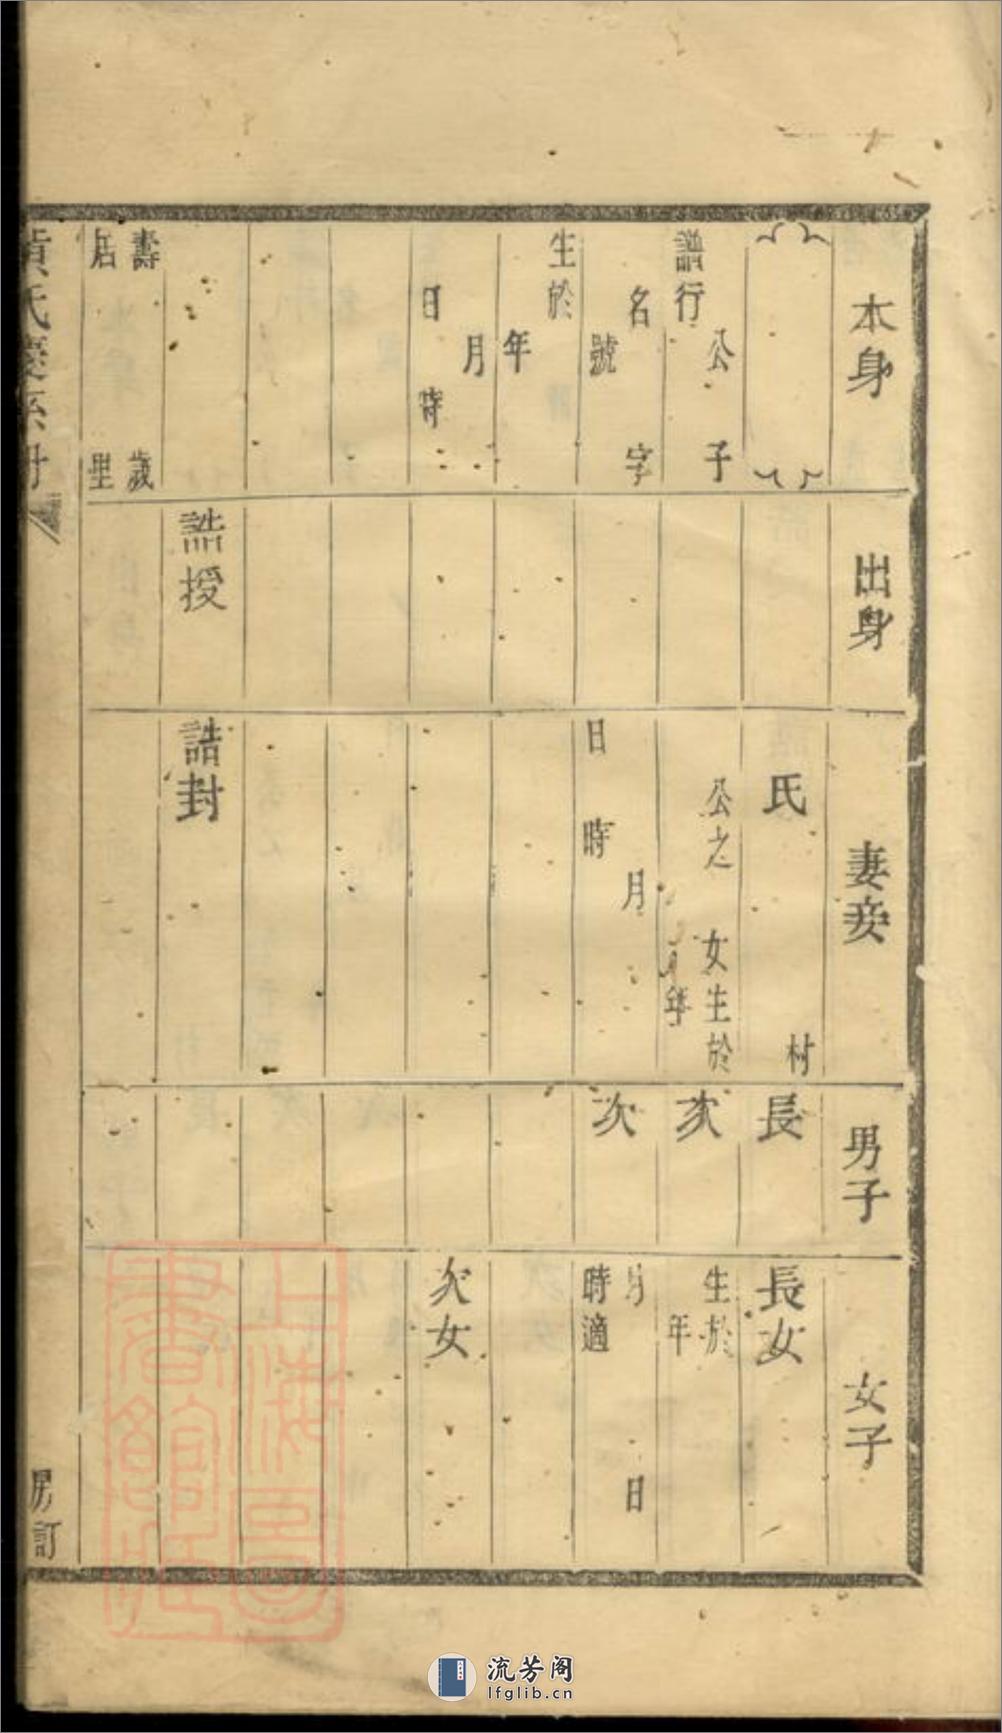 本身
譜行 公 子
名 字
號
生於
年
月
日 時
壽 歲
居 里
出身
誥授
妻妾
氏 村
公之 女生於
年
月
日 時
誥封
男子
長
次
次
女子
長女
生於
年
月 日
時適
次女
黃氏慶系冊
房訂
上海圖書館藏
流芳阁
lfglib.cn